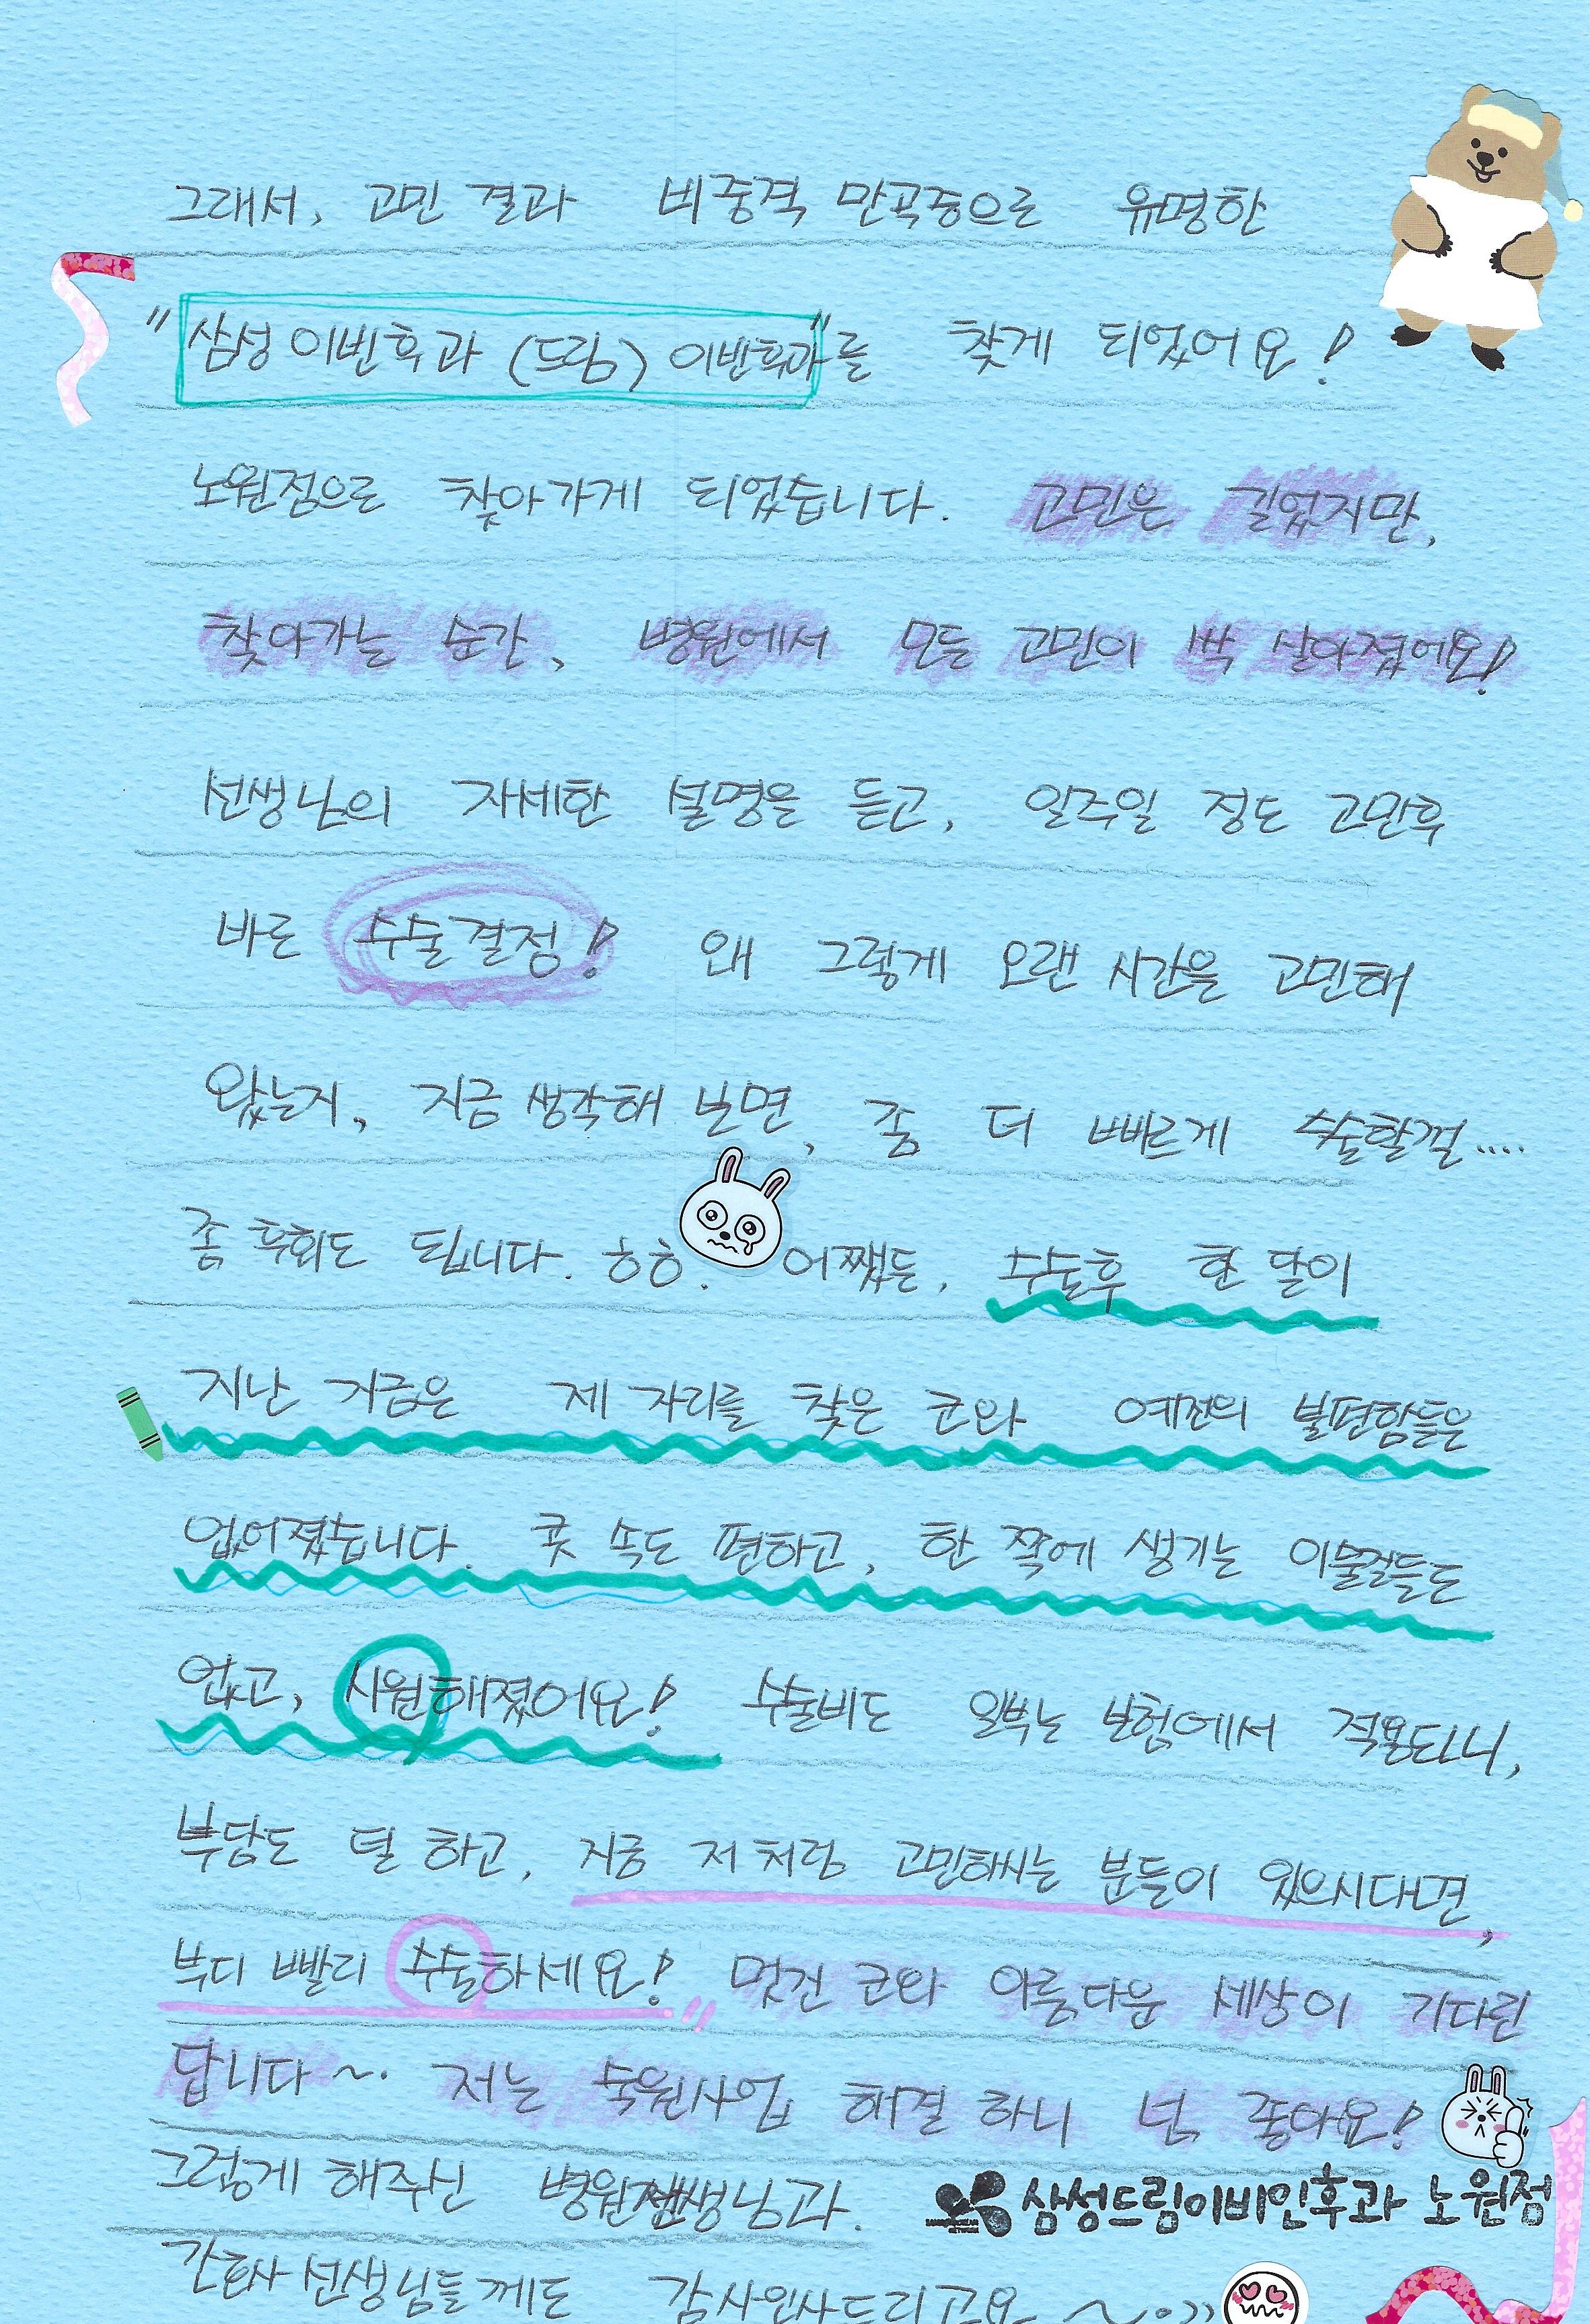 그래서, 고민 결과 비중격 만곡증으로 유명한
"삼성이빈후과 (드림) 이빈후과"를 찾게 되었어요!
노원점으로 찾아가게 되었습니다. 고민은 길었지만,
찾아가는 순간, 병원에서 모든 고민이 싹 살아졌어요!
선생님의 자세한 설명을 듣고, 일주일 정도 고민후
바로 수술결정! 왜 그렇게 오랜 시간을 고민해
왔는지, 지금 생각해 보면, 좀 더 빠르게 수술할껄....
좀 후회도 됩니다. ㅎㅎ. 어쨌든, 수술후 한 달이
지난 지금은 제 자리를 찾은 코와 예전의 불편함들은
없어졌습니다. 콧 속도 편하고, 한 쪽에 생기는 이물감들도
없고, 시원해졌어요! 수술비도 일부는 보험에서 적용되니,
부담도 덜 하고, 지금 저처럼 고민하시는 분들이 있으시다면,
부디 빨리 수술하세요! 멋진 코와 아름다운 세상이 기다린
답니다~. 저는 숙원사업 해결 하니 넘 좋아요!
그렇게 해주신 병원 선생님과.
삼성드림이비인후과 노원점
간호사 선생님들께도 감사인사드리고요~.))